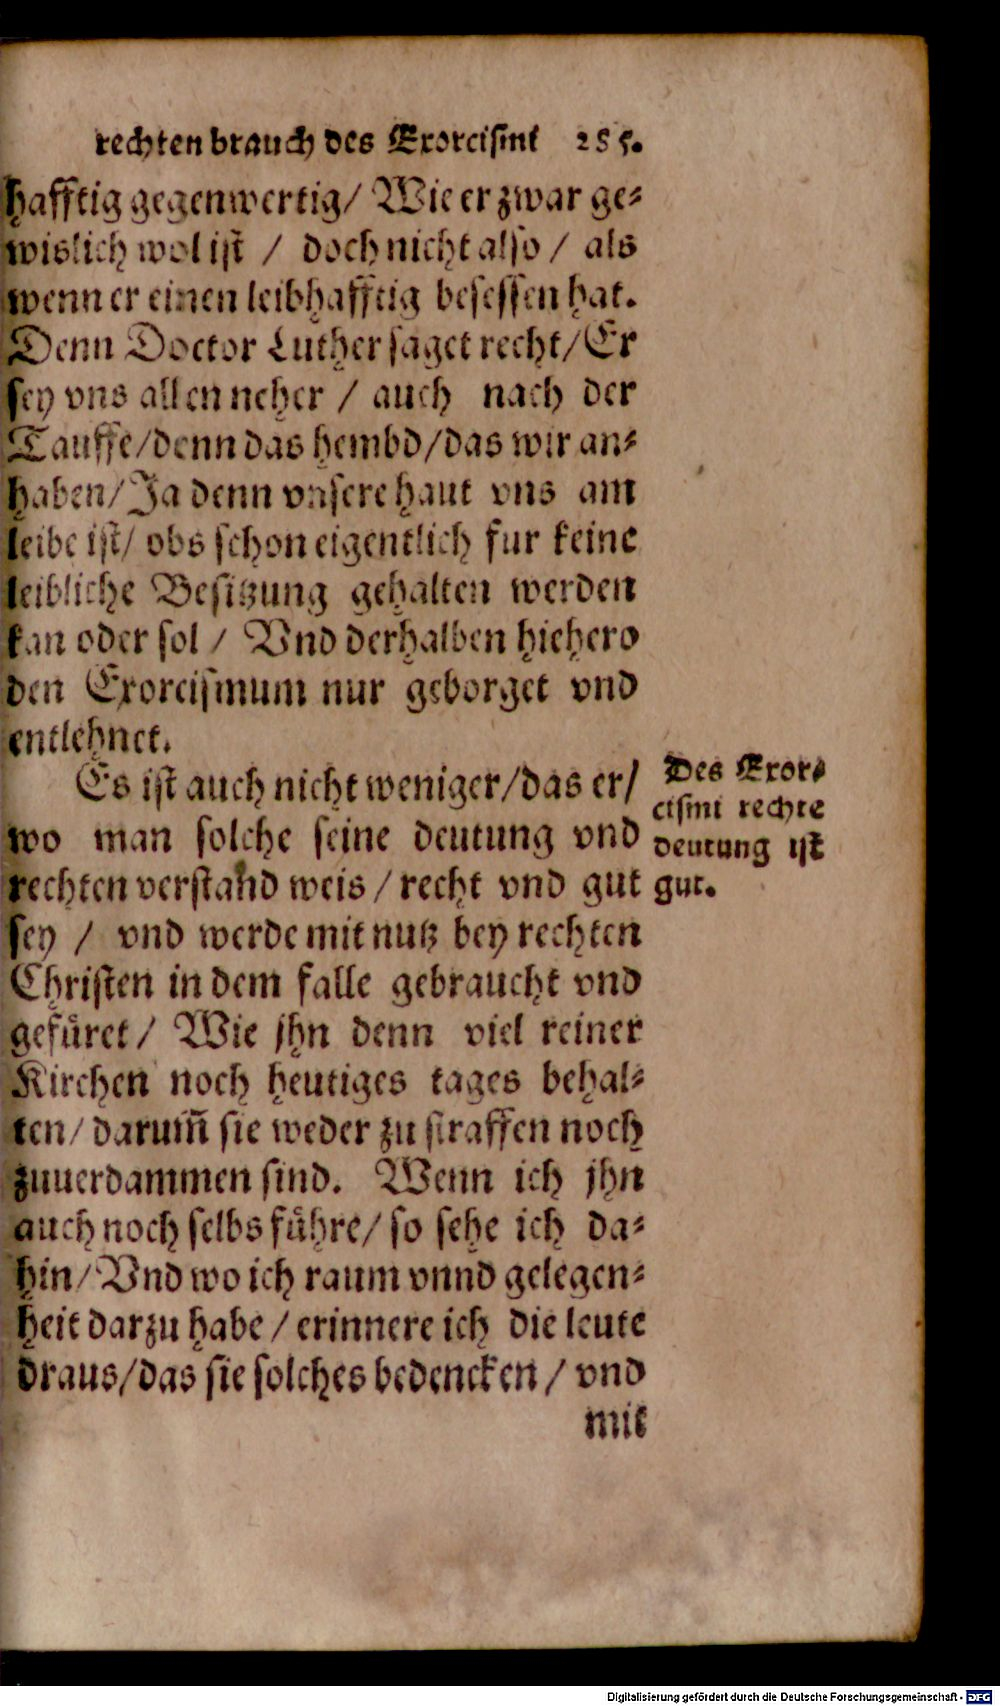 rechten brauch des Exorcismi 285.
hafftig gegenwertig/ Wie er zwar ge⸗
wislich wol ist / doch nicht also / als
wenn er einen leibhafftig besessen hat.
Denn Doctor Luther saget recht/ Er
sey vns allen neher / auch nach der
Tauffe/denn das hembd/das wir an⸗
haben/ Ja denn vnsere haut vns am
leibe ist/ obs schon eigentlich fur keine
leibliche Besitzung gehalten werden
kan oder sol / Vnd derhalben hiehero
den Exorcismum nur geborget vnd
entlehnet.
Es ist auch nicht weniger/das er/
wo man solche seine deutung vnd
rechten verstand weis / recht vnd gut
sey / vnd werde mit nutz bey rechten
Christen in dem falle gebraucht vnd
gefüret / Wie jhn denn viel reiner
Kirchen noch heutiges tages behal⸗
ten/ darum̃ sie weder zu straffen noch
zuuerdammen sind. Wenn ich jhn
auch noch selbs führe/ so sehe ich da⸗
hin/ Vnd wo ich raum vnnd gelegen⸗
heit darzu habe / erinnere ich die leute
draus/das sie solches bedencken / vnd
mit
Des Exor⸗
cismi rechte
deutung ist
gut.
Digitalisierung gefördert durch die Deutsche Forschungsgemeinschaft - DFG